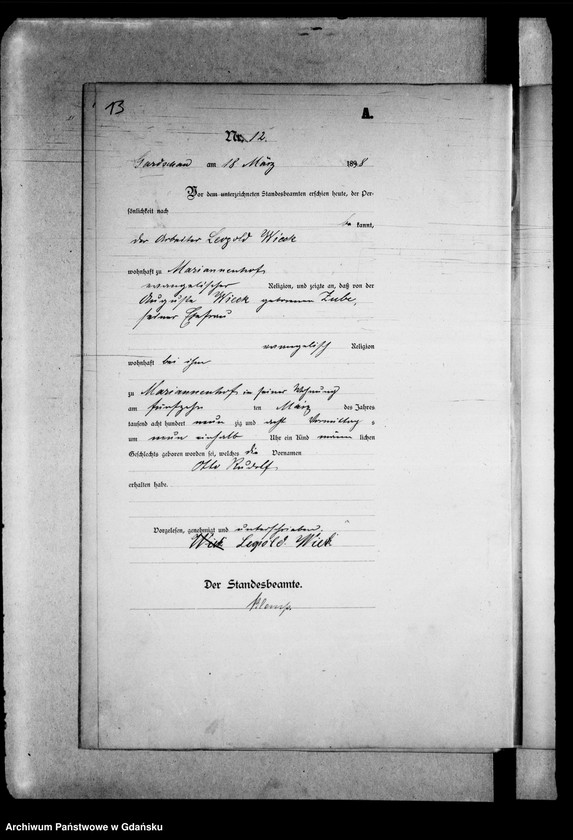 13
A.
Nr. 12.
Gardschau am 18 März 1898
Vor dem unterzeichneten Standesbeamten erschien heute, der Per-
sönlichkeit nach
be kannt,
der Arbeiter Leopold Wieck
wohnhaft zu Mariannenhof
evangelischer Religion, und zeigte an, daß von der
Auguste Wieck geborenen Zube,
seiner Ehefrau
evangelisch Religion
wohnhaft bei ihm
zu Mariannenhof in seiner Wohnung
am fünfzehn ten März des Jahres
tausend acht hundert neun zig und acht Vormittag s
um neun einhalb Uhr ein Kind männ lichen
Geschlechts geboren worden sei, welches die Vornamen
Otto Rudolf
erhalten habe.
Vorgelesen, genehmigt und unterschrieben.
Wieck Leopold Wieck
Der Standesbeamte.
Archiwum Państwowe w Gdańsku